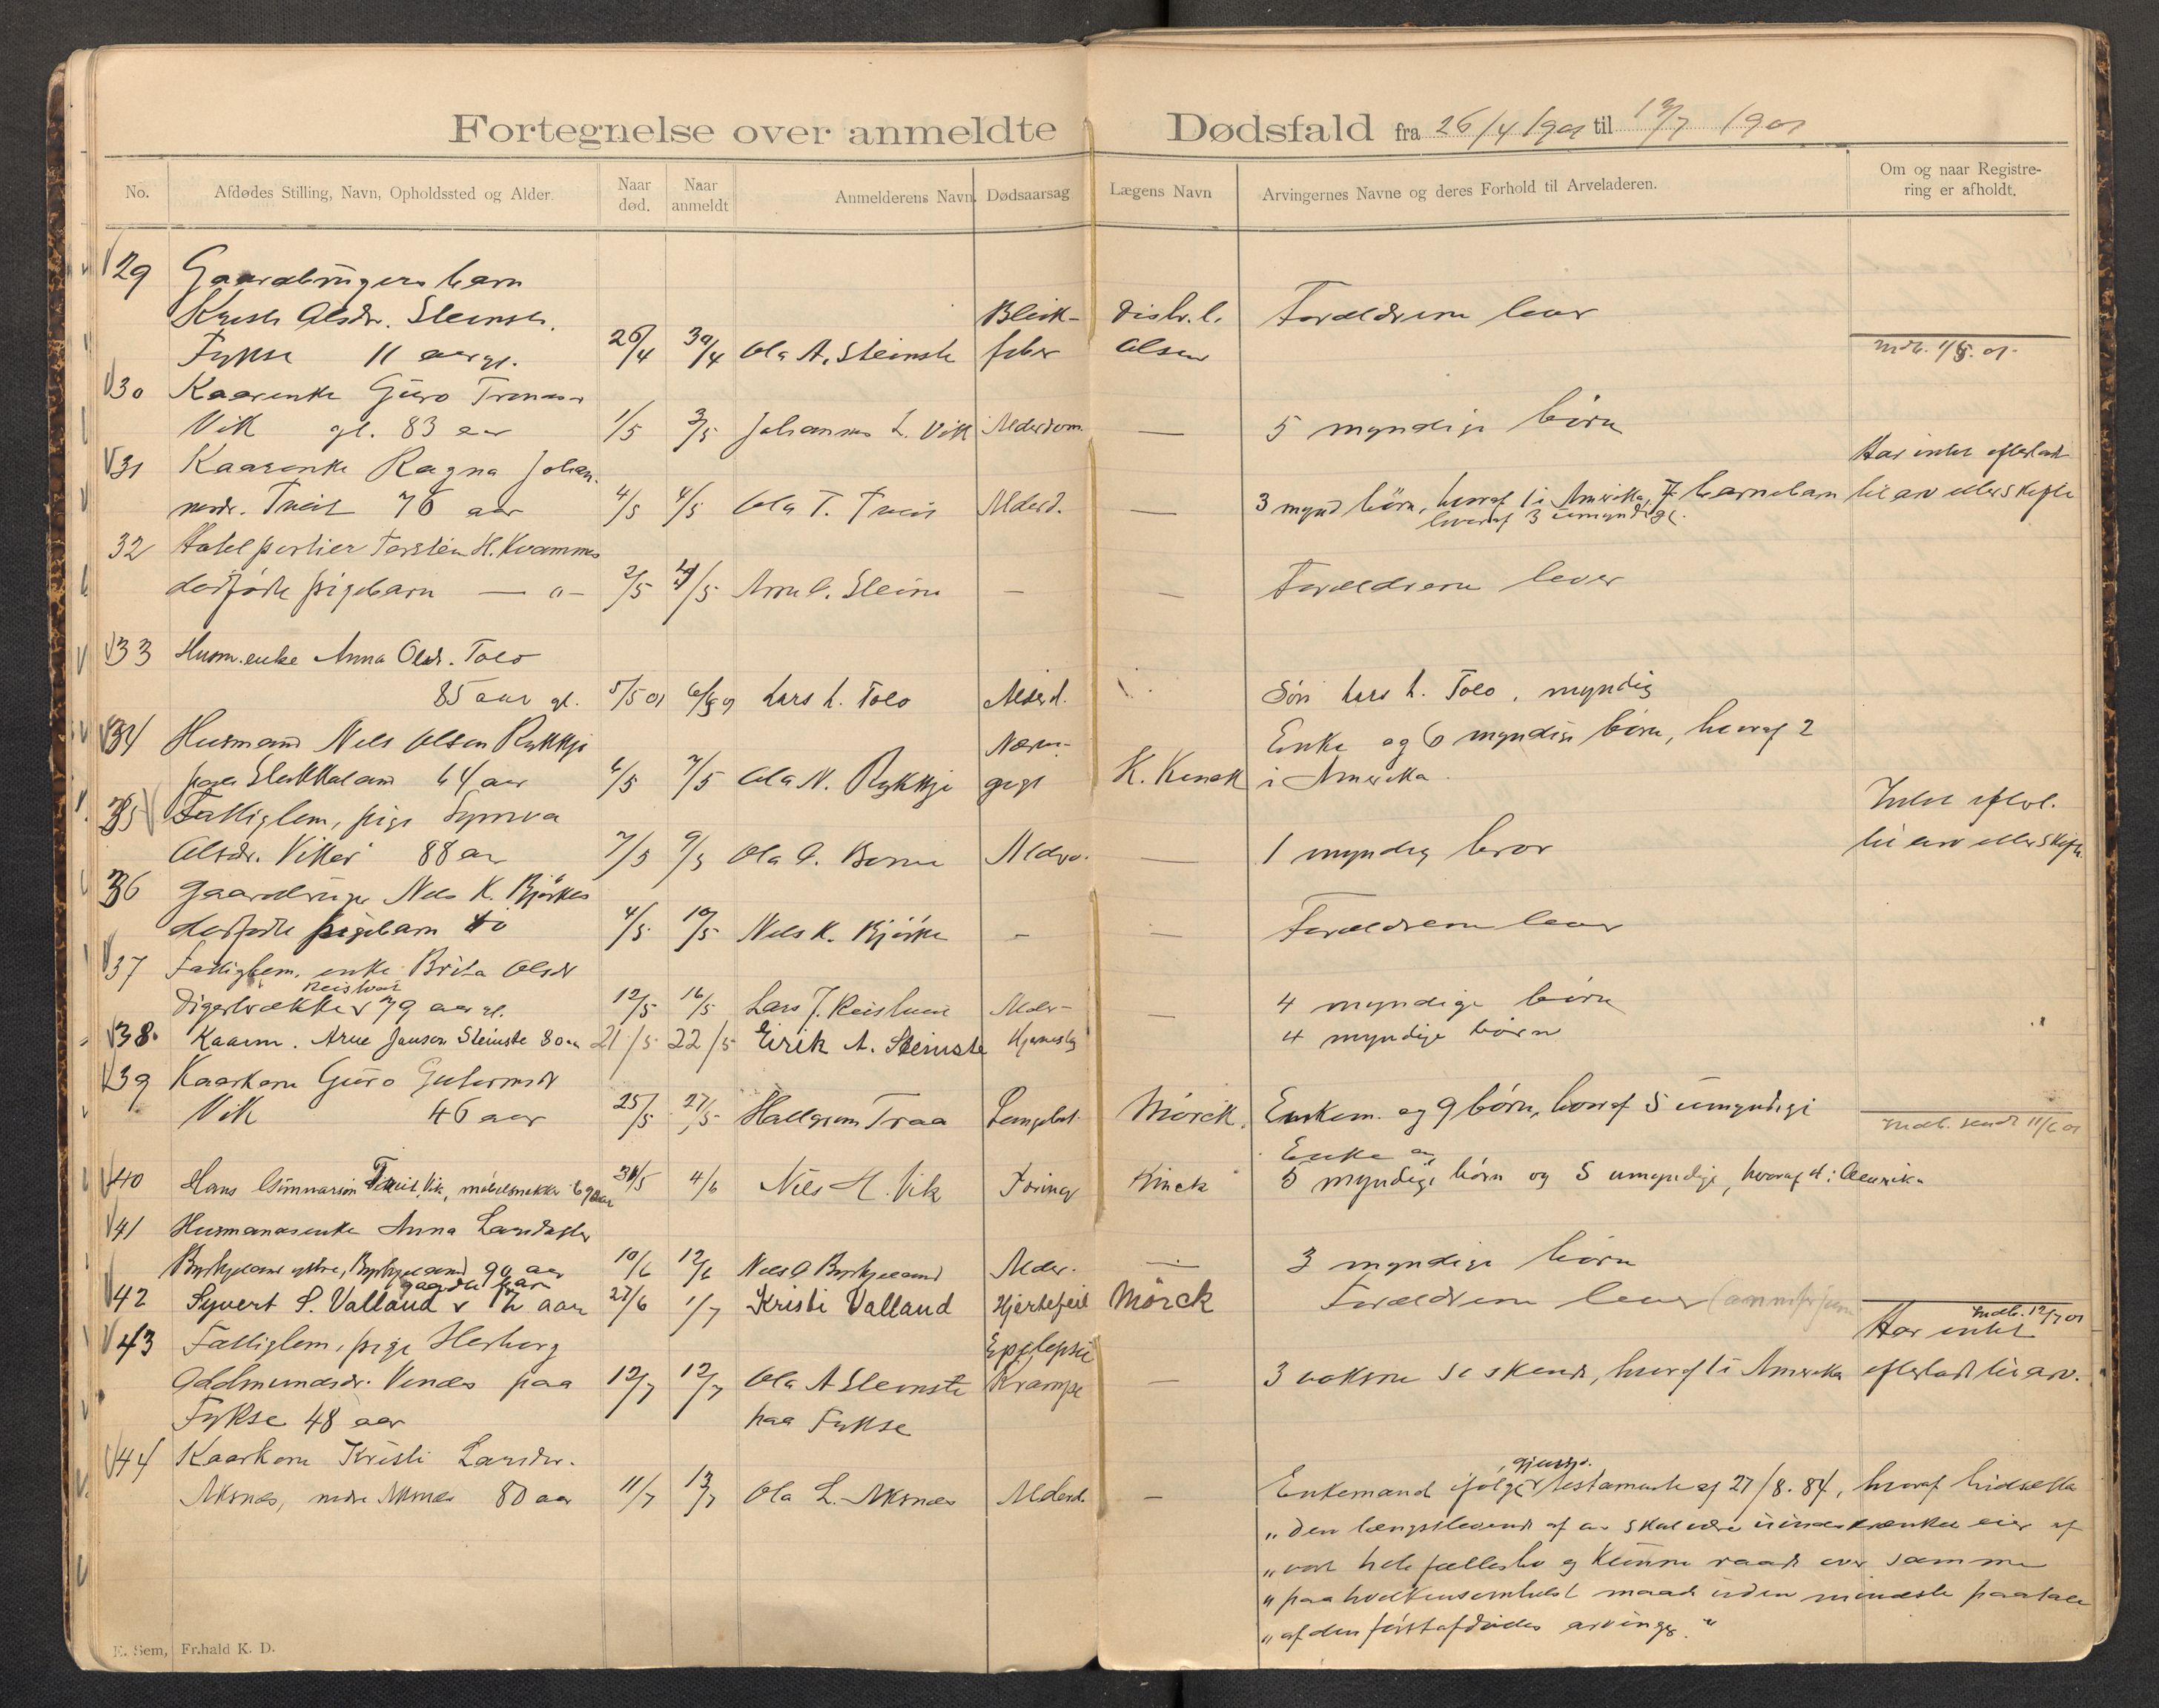 Fortegnelse over anmeldte Dødsfald fra 26/4 1901 til 13/7 1901
No. Afdødes Stilling, Navn, Opholdssted og Alder. Naar død. Naar anmeldt Anmelderens Navn. Dødsaarsag Lægens Navn Arvingernes Navne og deres Forhold til Arveladeren. Om og naar Registrering er afholdt.
29 Gaardbrugers barn
Olsdr. Steinst. Bleik- Distr.l. Forældrene lever
Fykse 11 aar gl. 26/4 30/4 Ola A. Steinste feber Olsen
30 Kaarenke Guro
Vik gl. 83 aar 1/5 3/5 Johannes L. Vik Alderdom — 5 myndige børn
31 Kaarenke Ragna Johan- Har intet efterladt
nesdr. Tveit 76 aar 4/5 4/5 Ola T. Tveit Alderd. — 3 mynd børn, hvoraf 1 i Amerika, 7 barnebarn til arv eller skifte
hvoraf 3 umyndige.
32 Hotelportier Torstein H. Kvammes
dødfødte pigebarn — 0 — 2/5 4/5 Arne O. Steine — — Forældrene lever
33 Husm.enke Anna Olsdr. Tolo
85 aar gl. 5/5 01 6/5 01 Lars L. Tolo Alderd. Søn Lars L. Tolo, myndig
34 Husmand Nils Olsen Rykkje Enke og 6 myndige børn, hvoraf 2
64 aar 6/5 7/5 Ola N. Rykkje i Amerika
35 Fattiglem, pige Synva Intet efterl.
Olsdr. Viker 88 aar 7/5 9/5 Ola O. — 1 myndig bror til arv eller skifte
36 Gaardbruger Nils K. Bjørke
dødfødte pigebarn 0 4/5 10/5 Nils K. Bjørke — — Forældrene lever
37 Fattiglem, enke Brita Olsdr
79 aar gl. 12/5 16/5 Lars J. Alder- — 4 myndige børn
38. Kaarm. Arne Janson Steinste 80 aar 21/5 22/5 Eirik A. Steinste 4 myndige børn
39 Kaarkone Guro
Vik 46 aar 25/5 27/5 Hallgrim Traa Mørck. Enkem. og 9 børn, hvoraf 5 umyndige 11/6 01
Enke og
40 Hans Gunnarson Tveit, Vik, møbelsnekker 69 aar 31/5 4/6 Nils H. Vik Kinck 5 myndige børn og 5 umyndige, hvoraf 1 i Amerika
41 Husmandsenke Anna Larsdatter
90 aar 10/6 12/6 Nils O Alder. — 3 myndige børn
42 Syvert S. Valland 27/6 1/7 Kristi Valland Hjertefeil Mørck Forældrene lever
12/7 01
43 Fattiglem, pige Herborg Epelepsie Har intet
Oddmundsdr. Vendes paa 12/7 12/7 Ola A Steinste Krampe — 3 voksne søskend, hvoraf 1 i Amerika efterladt til arv.
Fykse 48 aar paa Fykse
44 Kaarkone Kristi Larsdr.
Aksnes, nedre Aksnes 80 aar 11/7 13/7 Ola L. Aksnes Alderd. — Enkemand ifølge gjens. testamente af 27/8. 84, hvoraf hidsættes
„ den længstlevende af os skal være uindskrænket eier af
„ vort hele fællesbo og kunne raade over samme
„ paa hvilkensomhelst maade uden mindste paatale
„ af den førstafdødes arvinger. “
E. Sem, Fr.hald K. D.